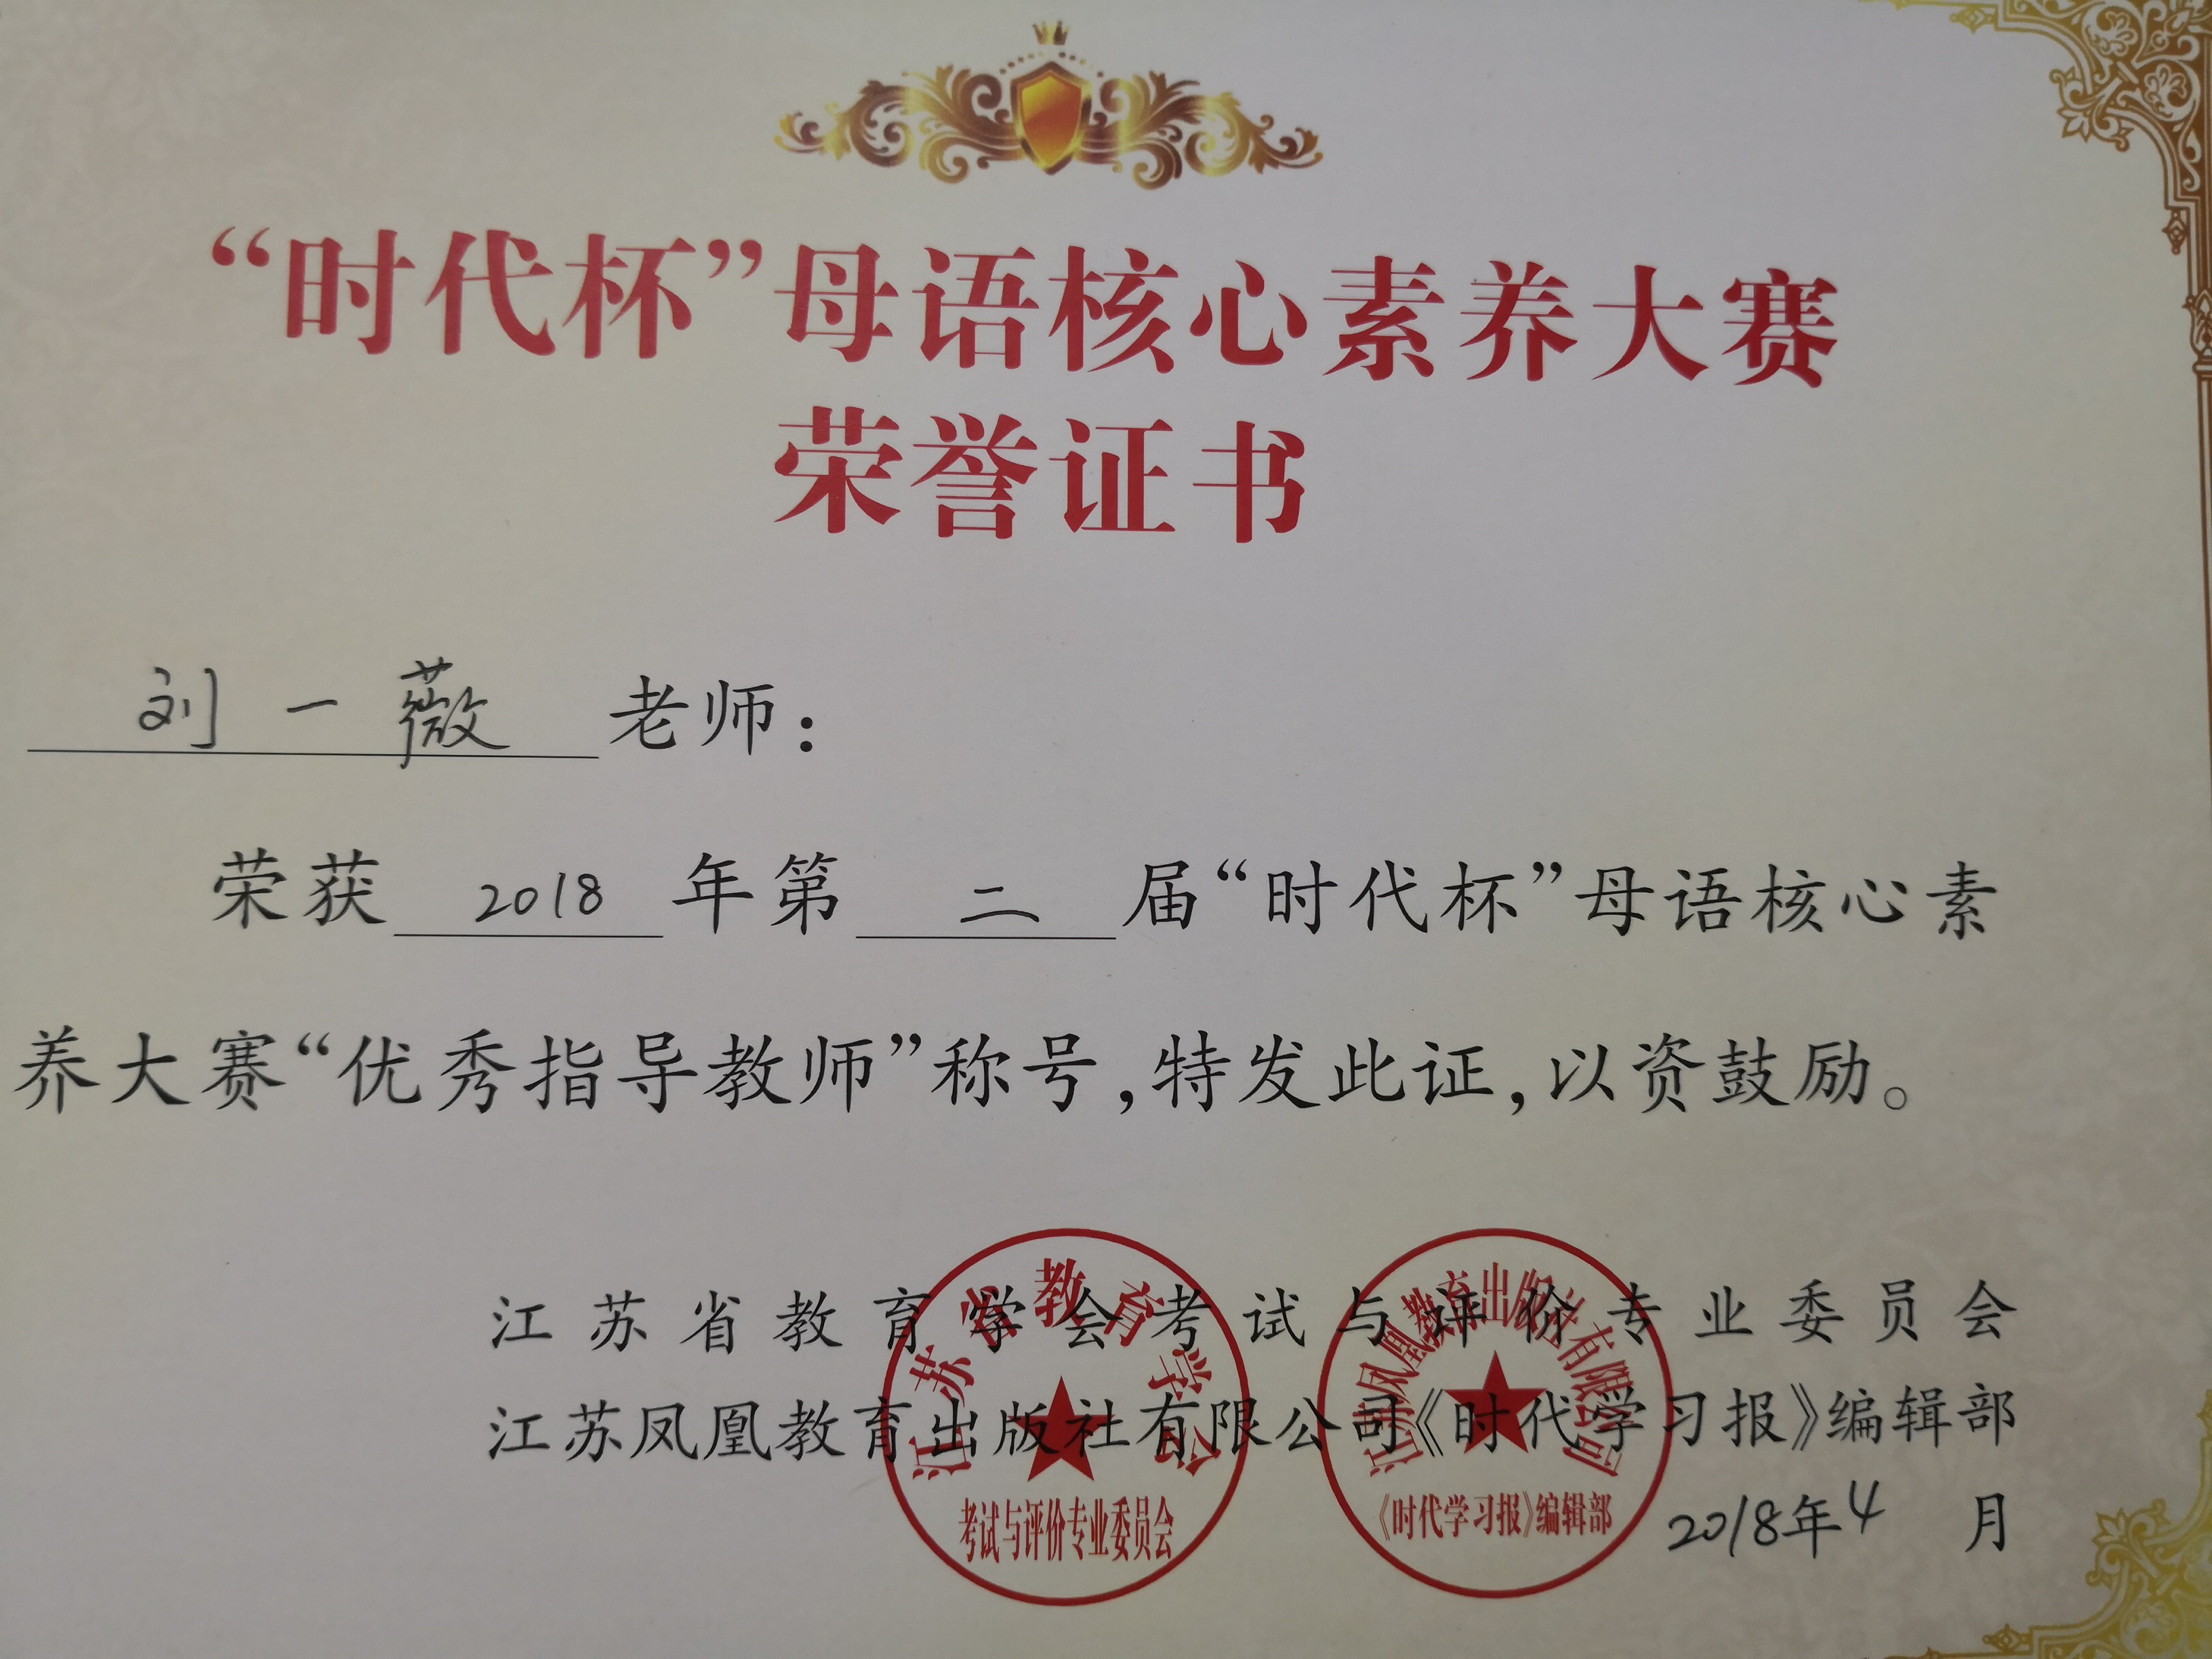 “时代杯”母语核心素养大赛
荣誉证书
刘一薇老师：
荣获 2018 年第 二 届“时代杯”母语核心素
养大赛“优秀指导教师”称号，特发此证，以资鼓励。
江苏省教育学会考试与评价专业委员会
江苏凤凰教育出版社有限公司《时代学习报》编辑部
2018年4月
江苏省教育学会
考试与评价专业委员会
江苏凤凰教育出版社有限公司
《时代学习报》编辑部